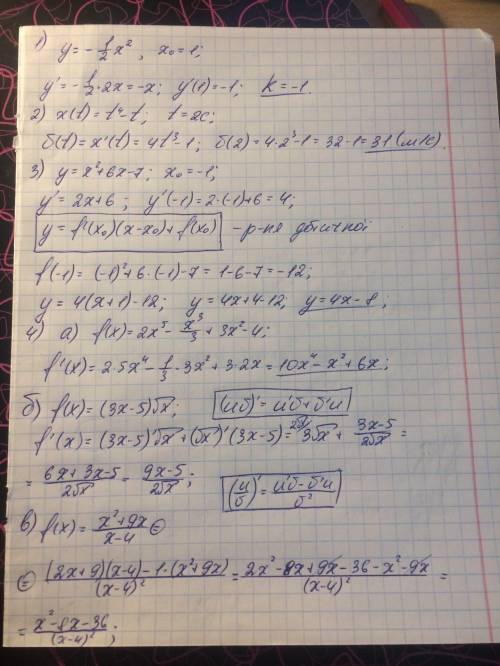 1) y = -1/2 x², x₀ = 1;
y' = -1/2 · 2x = -x; y'(1) = -1; k = -1.
2) x(t) = t⁴ - t; t = 2c;
б(t) = x'(t) = 4t³ - 1; б(2) = 4·2³ - 1 = 32 - 1 = 31 (м/с).
3) y = x² + 6x - 7; x₀ = -1;
y' = 2x + 6; y'(-1) = 2·(-1) + 6 = 4;
y = f'(x₀)(x - x₀) + f(x₀) - р-не дотичної
f(-1) = (-1)² + 6·(-1) - 7 = 1 - 6 - 7 = -12;
y = 4(x + 1) - 12; y = 4x + 4 - 12; y = 4x - 8;
4) а) f(x) = 2x⁵ - x³/3 + 3x² - 4;
f'(x) = 2·5x⁴ - 1/3 · 3x² + 3·2x = 10x⁴ - x² + 6x;
б) f(x) = (3x - 5)√x; (uб)' = u'б + б'u
f'(x) = (3x - 5)'√x + (√x)'(3x - 5) = 2√x/ 3√x + (3x - 5)/(2√x) =
= (6x + 3x - 5)/(2√x) = (9x - 5)/(2√x); (u/б)' = (u'б - б'u)/б²
в) f(x) = (x² + 9x)/(x - 4) ⊜
⊜ ((2x + 9)(x - 4) - 1·(x² + 9x))/(x - 4)² = (2x² - 8x + 9x - 36 - x² - 9x)/(x - 4)² =
= (x² - 8x - 36)/(x - 4)²;